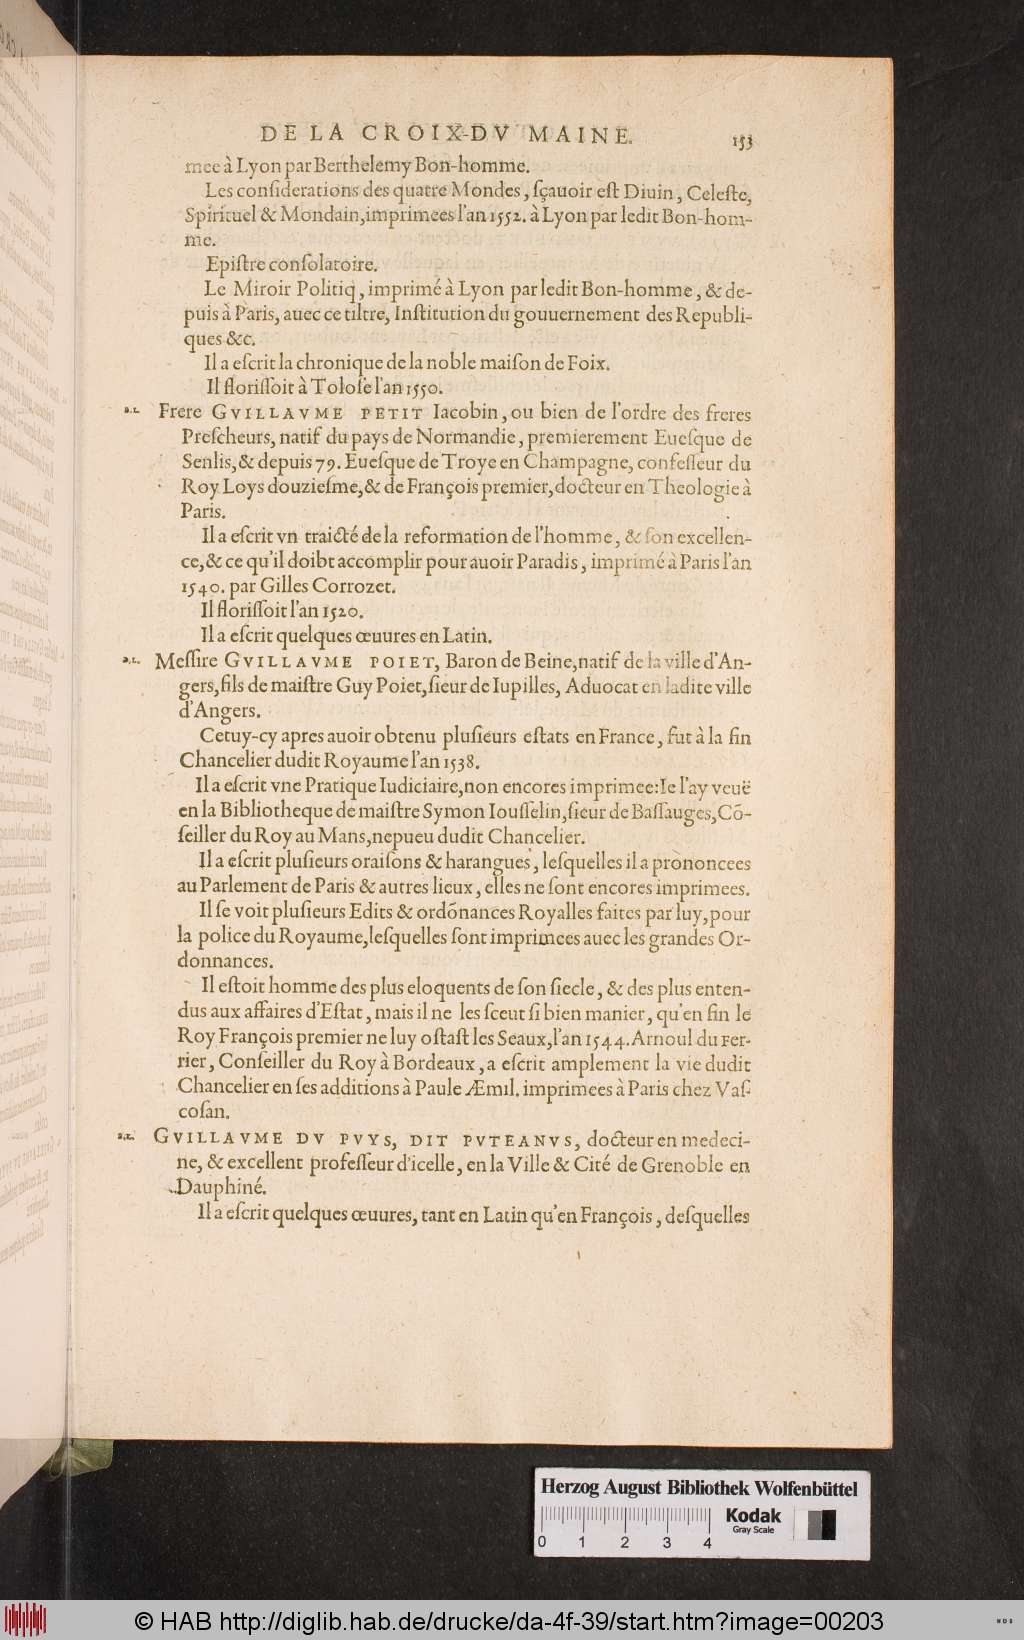 DE LA CROIX-DV MAINE. 153
mee à Lyon par Berthelemy Bon-homme.
Les conſiderations des quatre Mondes, ſçauoir eſt Diuin, Celeſte,
Spirituel & Mondain, imprimees l'an 1552. à Lyon par ledit Bon-hom-
me.
Epiſtre conſolatoire.
Le Miroir Politiq, imprimé à Lyon par ledit Bon-homme, & de-
puis à Paris, auec ce tiltre, Inſtitution du gouuernement des Republi-
ques &c.
Il a eſcrit la chronique de la noble maiſon de Foix.
Il floriſſoit à Toloſe l'an 1550.
Frere GVILLAVME PETIT Iacobin, ou bien de l'ordre des freres
Preſcheurs, natif du pays de Normandie, premierement Eueſque de
Senlis, & depuis 79. Eueſque de Troye en Champagne, confeſſeur du
Roy Loys douzieſme, & de François premier, docteur en Theologie à
Paris.
Il a eſcrit vn traicté de la reformation de l'homme, & ſon excellen-
ce, & ce qu'il doibt accomplir pour auoir Paradis, imprimé à Paris l'an
1540. par Gilles Corrozet.
Il floriſſoit l'an 1520.
Il a eſcrit quelques œuures en Latin.
Meſſire GVILLAVME POIET, Baron de Beine, natif de la ville d'An-
gers, fils de maiſtre Guy Poiet, ſieur de Iupilles, Aduocat en ladite ville
d'Angers.
Cetuy-cy apres auoir obtenu pluſieurs eſtats en France, fut à la fin
Chancelier dudit Royaume l'an 1538.
Il a eſcrit vne Pratique Iudiciaire, non encores imprimee: Ie l'ay veuë
en la Bibliotheque de maiſtre Symon Iouſſelin, ſieur de Baſſauges, Cõ-
ſeiller du Roy au Mans, nepueu dudit Chancelier.
Il a eſcrit pluſieurs oraiſons & harangues, leſquelles il a prononcees
au Parlement de Paris & autres lieux, elles ne ſont encores imprimees.
Il ſe voit pluſieurs Edits & ordõnances Royalles faites par luy, pour
la police du Royaume, leſquelles ſont imprimees auec les grandes Or-
donnances.
Il eſtoit homme des plus eloquents de ſon ſiecle, & des plus enten-
dus aux affaires d'Eſtat, mais il ne les ſceut ſi bien manier, qu'en fin le
Roy François premier ne luy oſtaſt les Seaux, l'an 1544. Arnoul du Fer-
rier, Conſeiller du Roy à Bordeaux, a eſcrit amplement la vie dudit
Chancelier en ſes additions à Paule Æmil. imprimees à Paris chez Vaſ-
coſan.
GVILLAVME DV PVYS, DIT PVTEANVS, docteur en medeci-
ne, & excellent profeſſeur d'icelle, en la Ville & Cité de Grenoble en
Dauphiné.
Il a eſcrit quelques œuures, tant en Latin qu'en François, deſquelles
Herzog August Bibliothek Wolfenbüttel
Kodak
Gray Scale
0 1 2 3 4
© HAB http://diglib.hab.de/drucke/da-4f-39/start.htm?image=00203